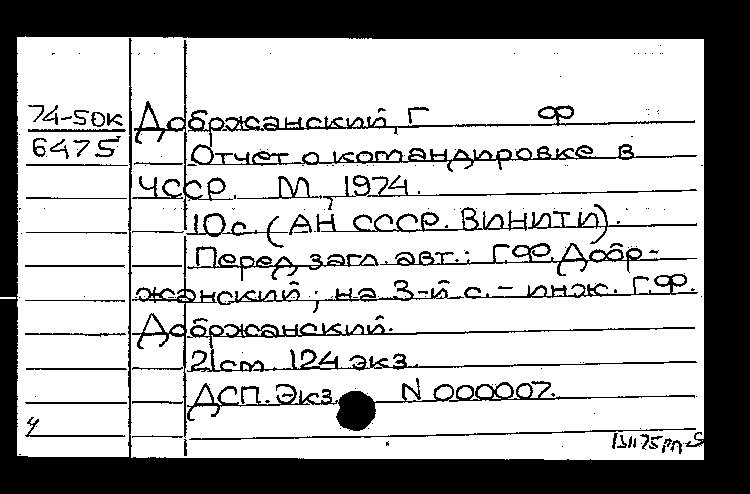 74-50к Добржанский, Г Ф
6475 Отчет о командировке в
ЧССР. М, 1974.
10с. (АН СССР. ВИНИТИ).
Перед загл. авт.: Г.Ф. Добр-
жанский; на 3-й с. - инж. Г.Ф.
Добржанский.
21ст. 124 экз.
ДСП. Экз. N 000007.